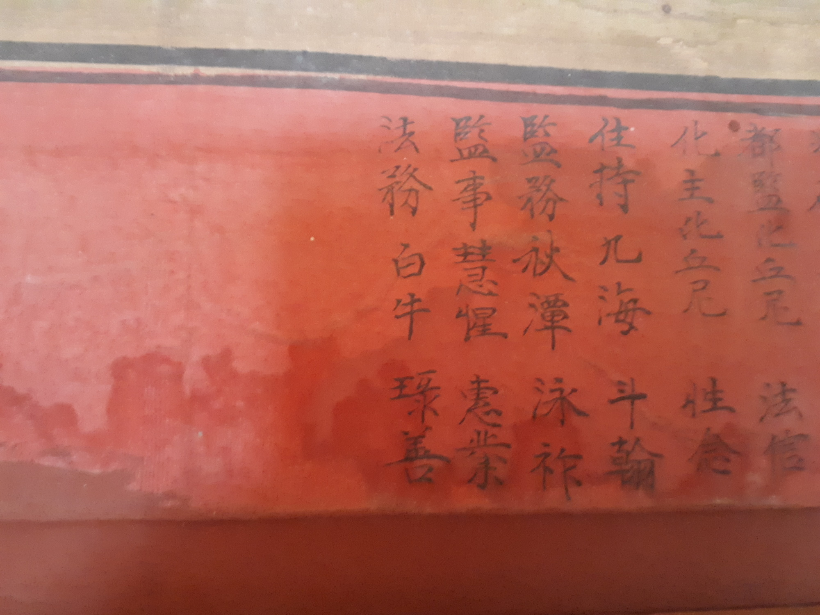 都監比丘尼 法信
化主比丘尼 性念
住持 九海 斗翰
監務 秋潭 泳祚
監事 慧惺 憲榮
法務 白牛 琭善